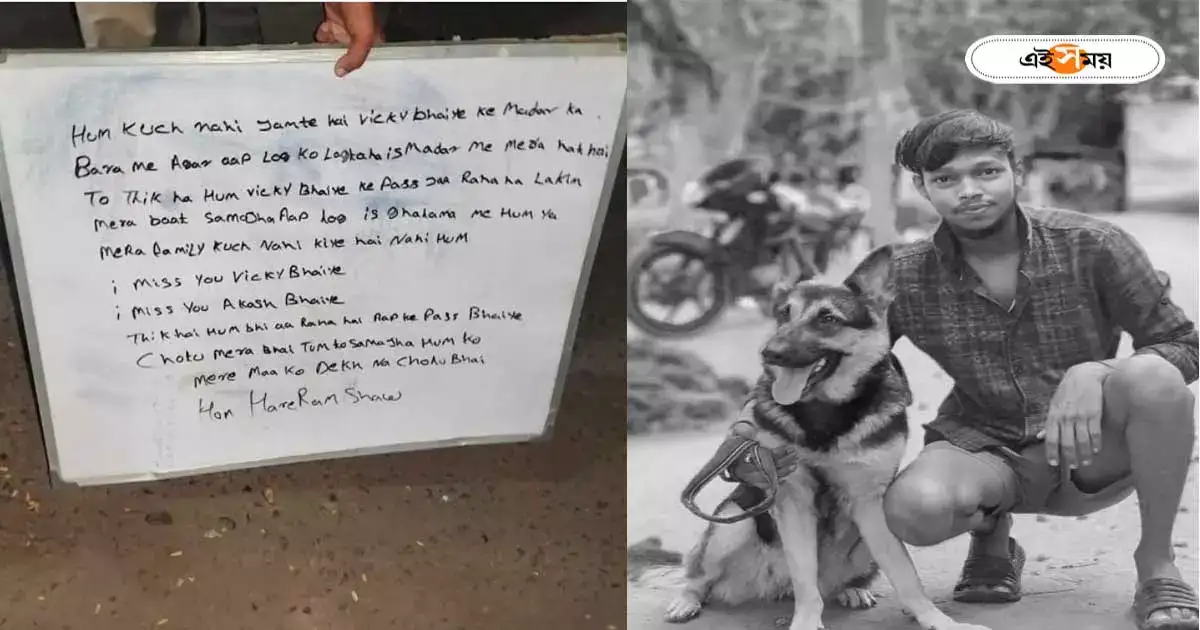 এই সময়
Hum Kuch nahi Jamte hai Vicky Bhaiye ke Madar ka
Bara me Agar aap Log Ko Lagtaha is Madar me Mera hak hai,
To Thik ha Hum Vicky Bhaiye ke Pass Jaa Raha ha Lakin
mera baat Samadha Aap Log is Jhalama me Hum Ya
Mera Family Kuch Nahi Kiye hai Nahi Hum
i Miss You Vicky Bhaiye
i Miss You Akash Bhaiye
Thik hai Hum bhi aa Raha hai Aap ke Pass Bhaiye
Chotu Mera Bhai Tum to Samajha Hum Ko
Mere Maa Ko Dekh Na Chotu Bhai
Hareram Shaw